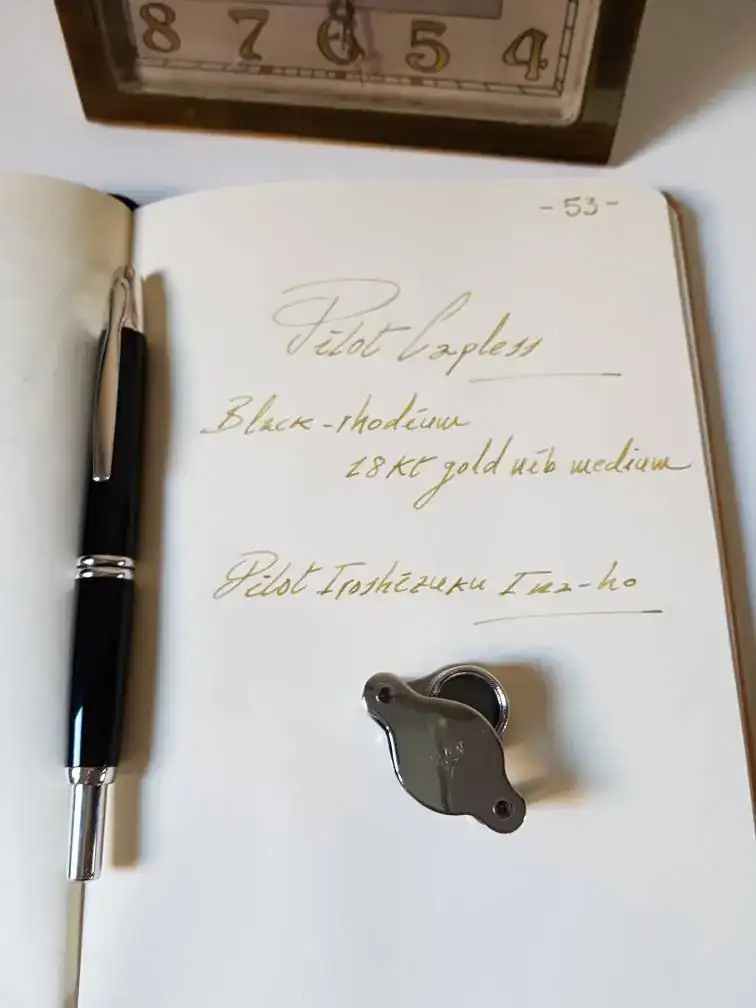 8 7 6 5 4
- 53 -
Pilot Capless
Black-rhodium
18 Kt gold nib medium
Pilot Iroshizuku Ina-ho